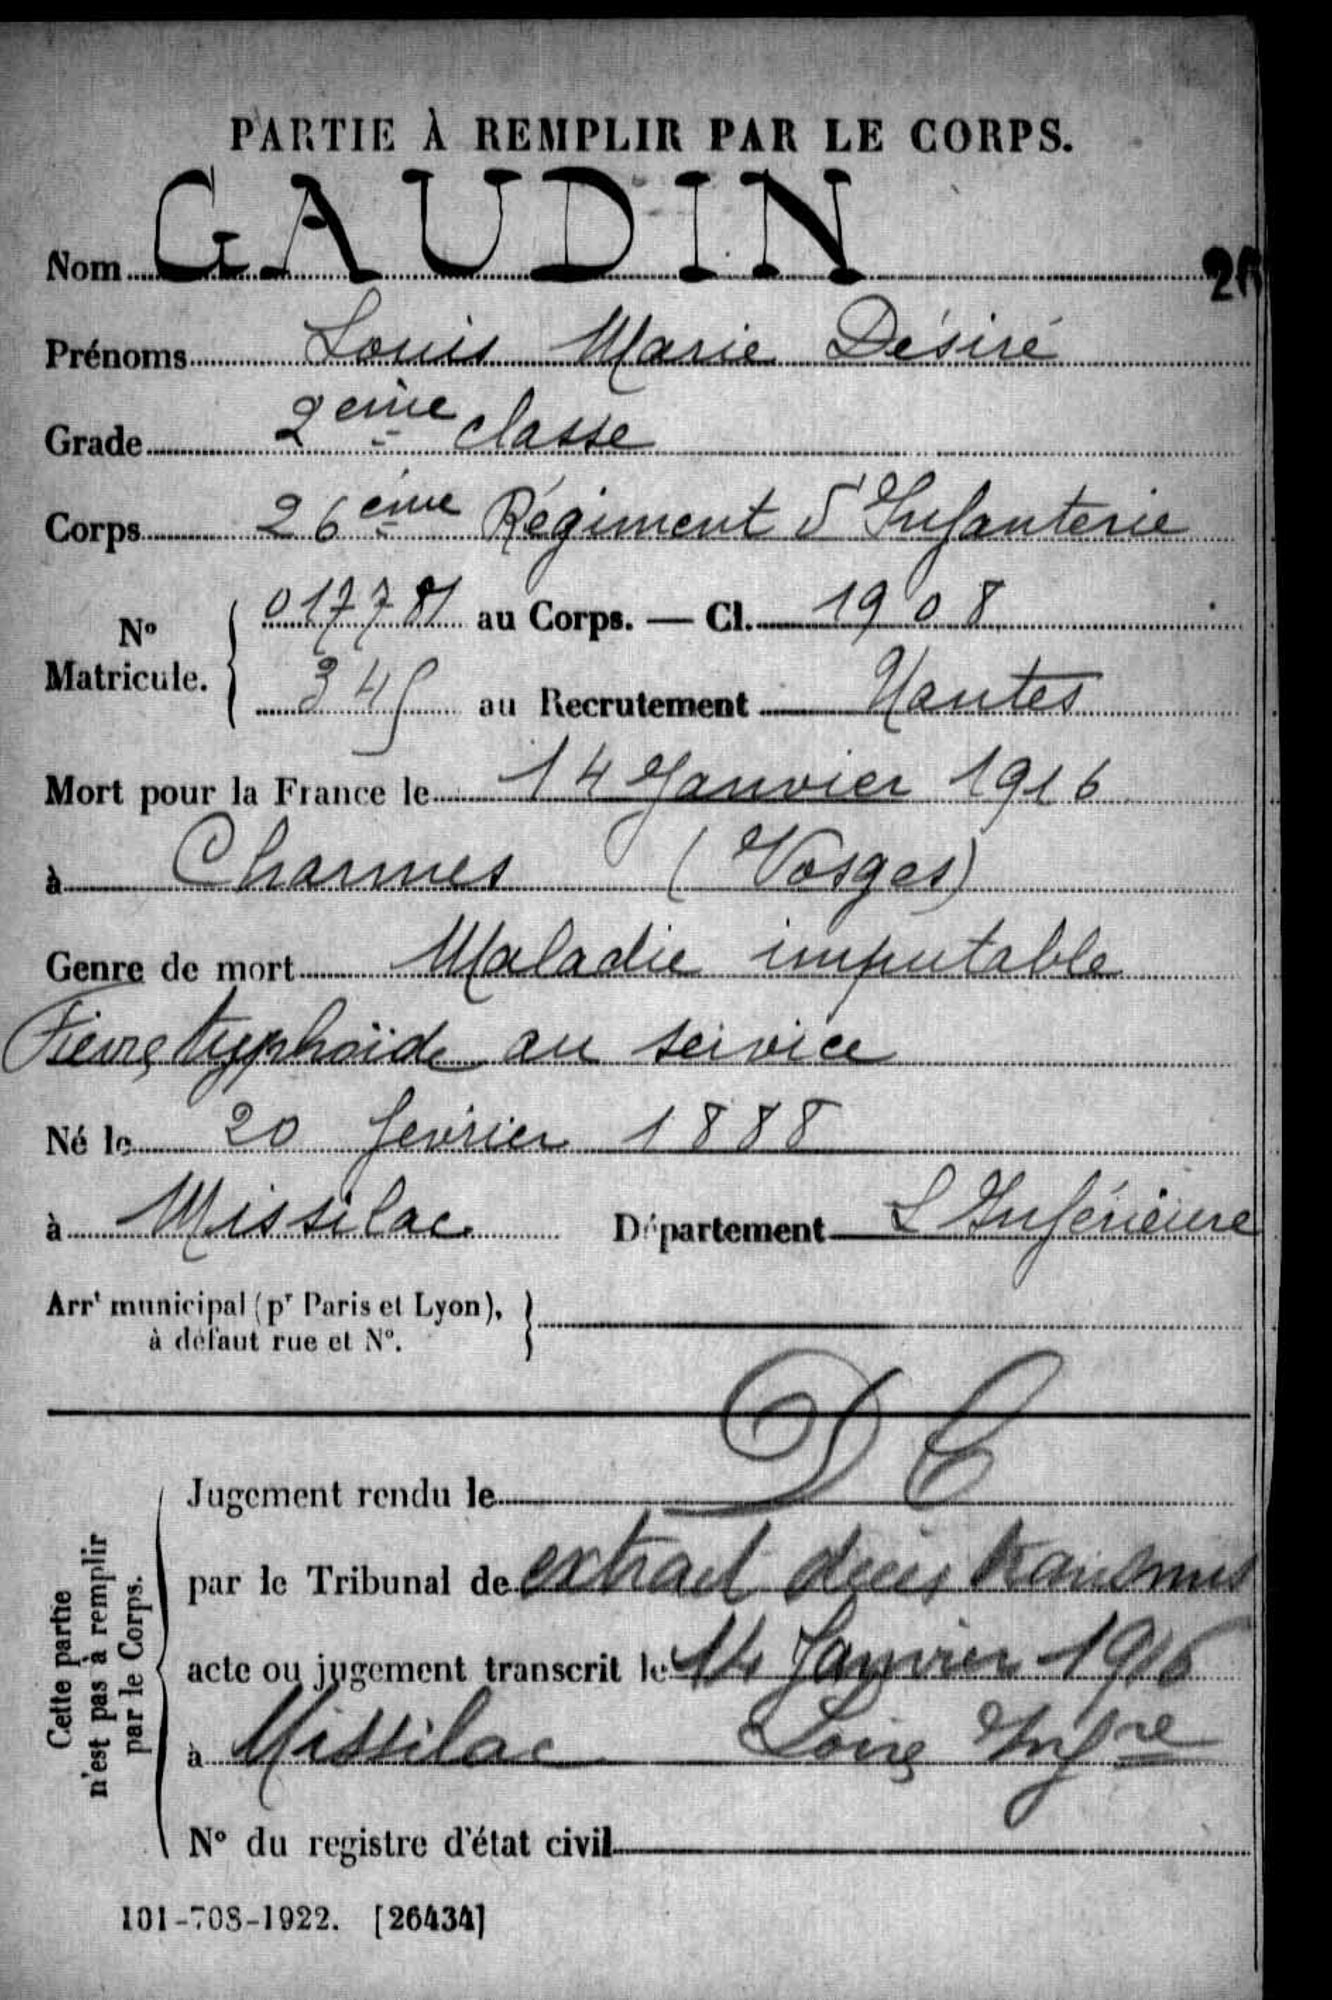 PARTIE À REMPLIR PAR LE CORPS.
Nom GAUDIN
Prénoms Louis Marie Désiré
Grade 2ème classe
Corps 26ème Régiment d'Infanterie
N° Matricule. 017781 au Corps. — Cl. 1908
345 au Recrutement Nantes
Mort pour la France le 14 Janvier 1916
à Charmes (Vosges)
Genre de mort Maladie imputable
Fièvre typhoïde au service
Né le 20 février 1888
à Missilac Département L Inférieure
Arrt municipal (pr Paris et Lyon),
à défaut rue et N°.
DC
Cette partie
n'est pas à remplir
par le Corps.
Jugement rendu le
par le Tribunal de extrait décès transmis
acte ou jugement transcrit le 14 Janvier 1916
à Missilac Loire Infre
N° du registre d'état civil
101-708-1922. [26434]